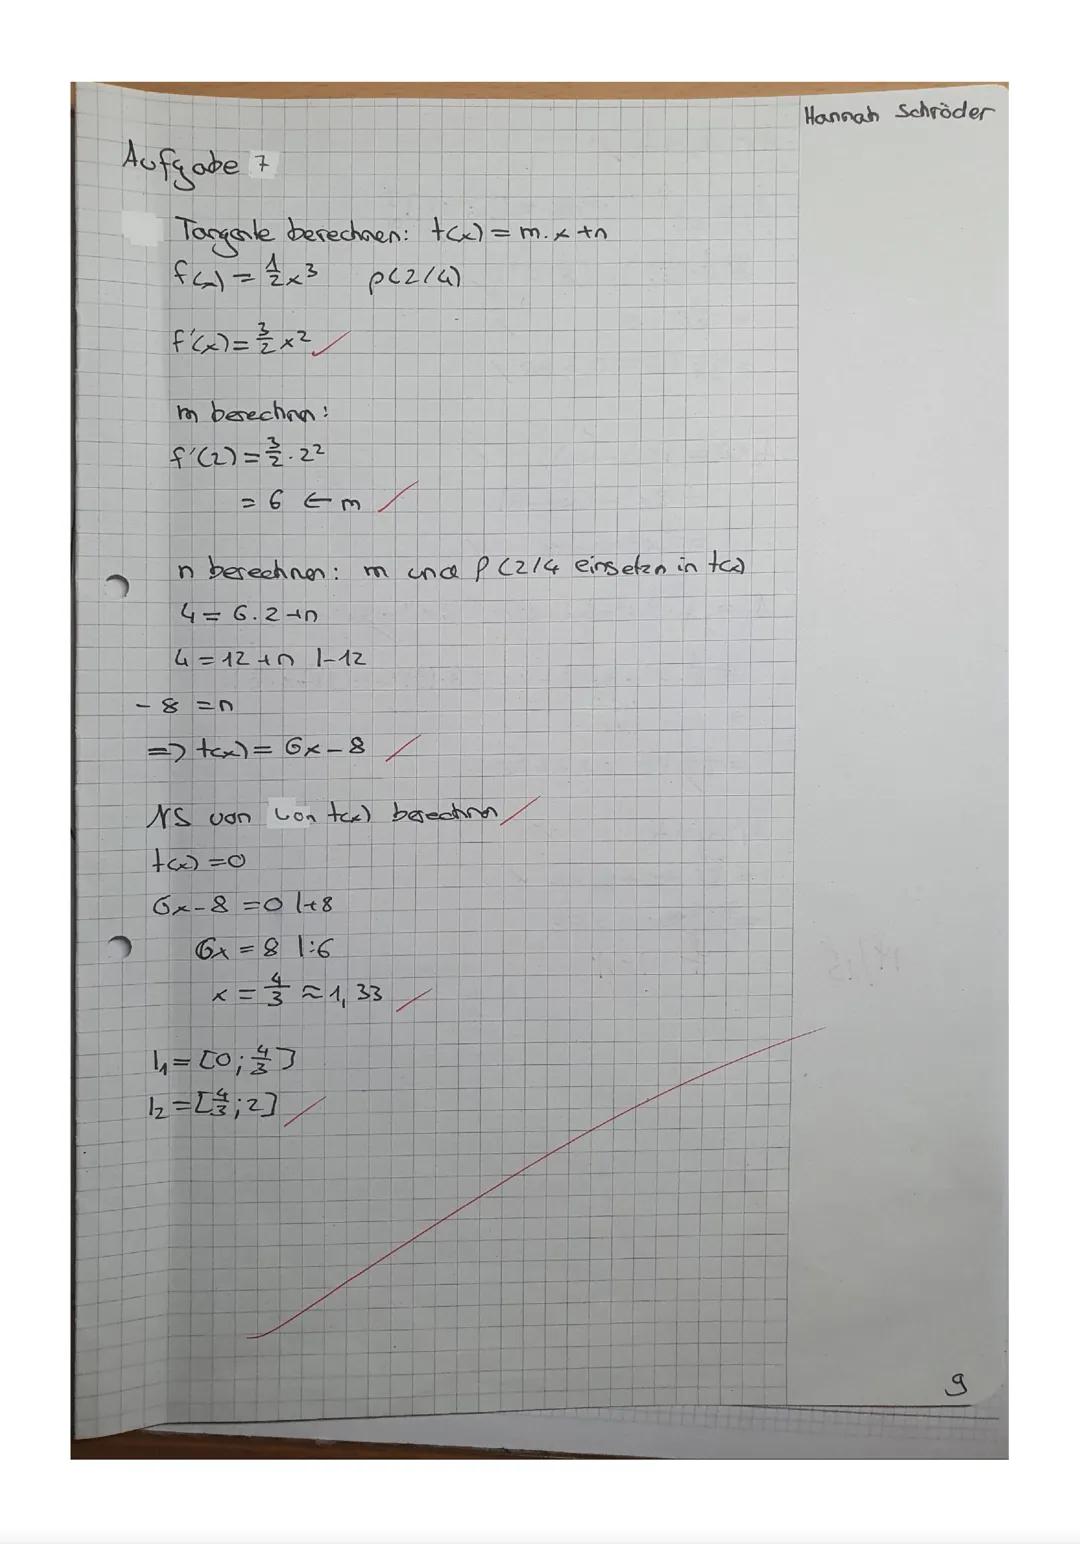 Hannah Schröder
Aufgabe 7
Tangente berechnen: t(x) = m·x+n
f(x) = 1/2 x³ P(2/4)
f'(x) = 3/2 x²
m berechnen:
f'(2) = 3/2 · 2²
= 6 ← m
n berechnen: m und P(2/4 einsetzen in t(x)
4 = 6·2+n
4 = 12+n |-12
-8 = n
=> t(x) = 6x-8
NS von von t(x) berechnen
t(x) = 0
6x-8 = 0 |+8
6x = 8 |:6
x = 4/3 ≈ 1,33
I₁ = [0; 4/3]
I₂ = [4/3; 2]
9